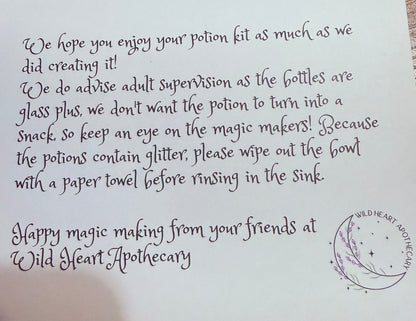 We hope you enjoy your potion kit as much as we
did creating it!
We do advise adult supervision as the bottles are
glass plus, we don't want the potion to turn into a
snack, so keep an eye on the magic makers! Because
the potions contain glitter, please wipe out the bowl
with a paper towel before rinsing in the sink.
Happy magic making from your friends at
Wild Heart Apothecary
WILD HEART APOTHECARY